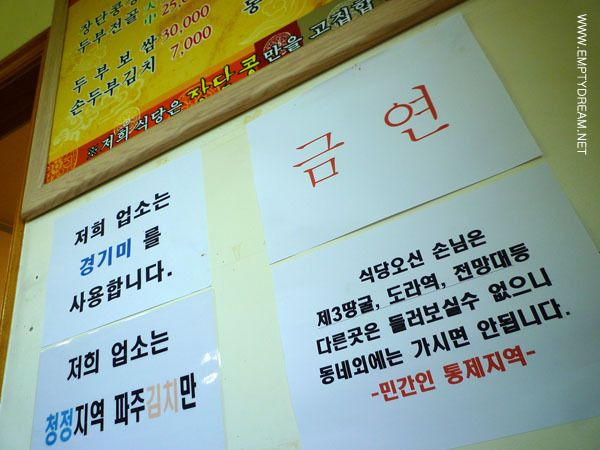 장단콩
두부전골 大
小 25,0
두부보쌈 30,000
손두부김치 7,000
※저희 식당은 장단콩만을 고집합
WWW.EMPTYDREAM.NET
금연
저희 업소는
경기미 를
사용합니다.
저희 업소는
청정지역 파주김치만
식당오신 손님은
제3땅굴, 도라역, 전망대등
다른곳은 들러보실수 없으니
동네외에는 가시면 안됩니다.
-민간인 통제지역-